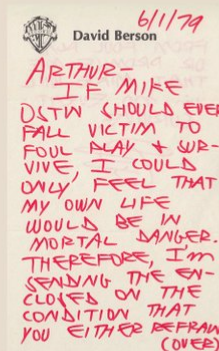 6/1/79
David Berson
ARTHUR-
IF MIKE
OSTIN SHOULD EVER
FALL VICTIM TO
FOUL PLAY + SUR-
VIVE, I COULD
ONLY, FEEL THAT
MY OWN LIFE
WOULD BE IN
MORTAL DANGER.
THEREFORE, I'M
SENDING THE EN-
CLOSED ON THE
CONDITION THAT
YOU EITHER REFRAIN
(OVER)